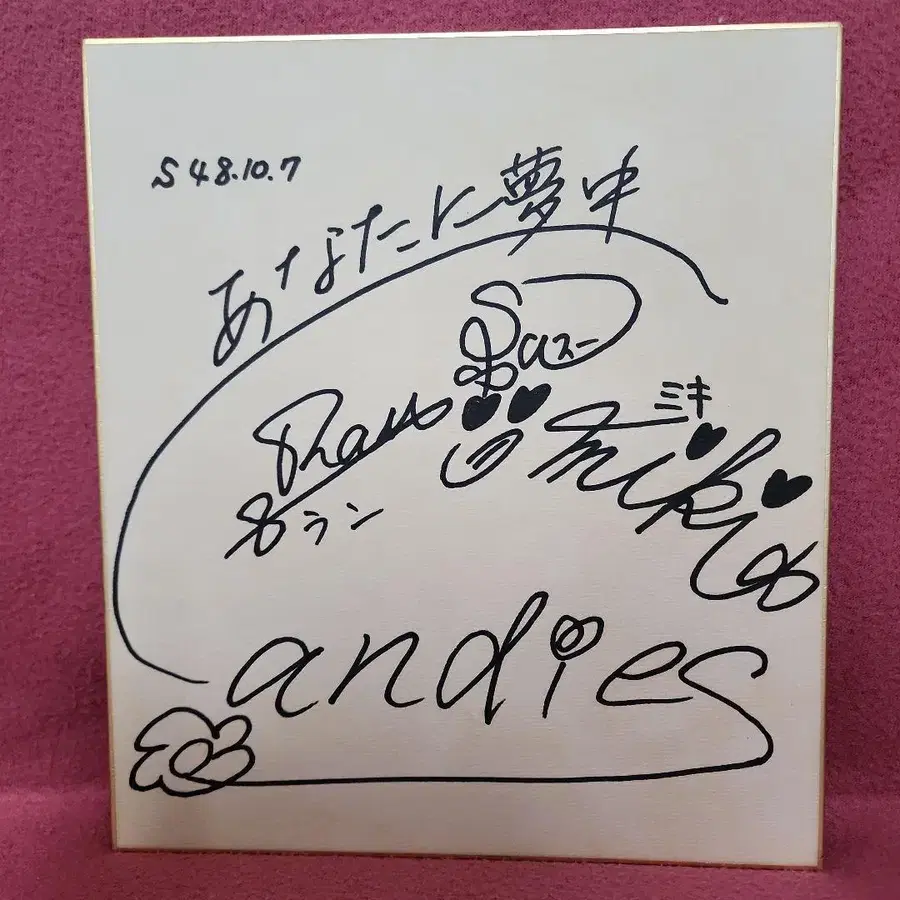 S 48.10.7
あなたに夢中
Suスー
Ran
ミキ
miki
ラン
andies